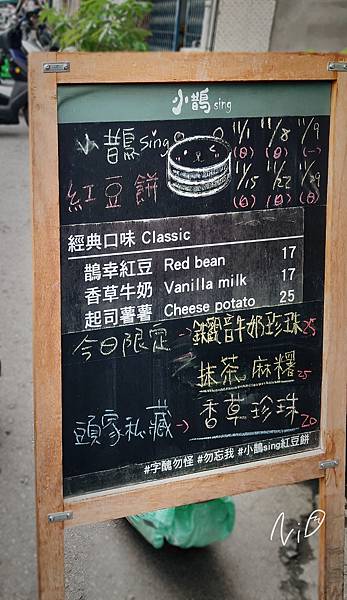 小鵲 sing
小鵲sing 11/1 11/8 11/9
(日) (日) (一)
紅豆餅 11/15 11/22 11/29
(日) (日) (日)
經典口味 Classic
鵲幸紅豆 Red bean 17
香草牛奶 Vanilla milk 17
起司薯薯 Cheese potato 25
今日限定→鐵觀音牛奶珍珠25
抹茶麻糬25
頭家私藏→香草珍珠20
#字醜勿怪 #勿忘我 #小鵲sing紅豆餅
ViD